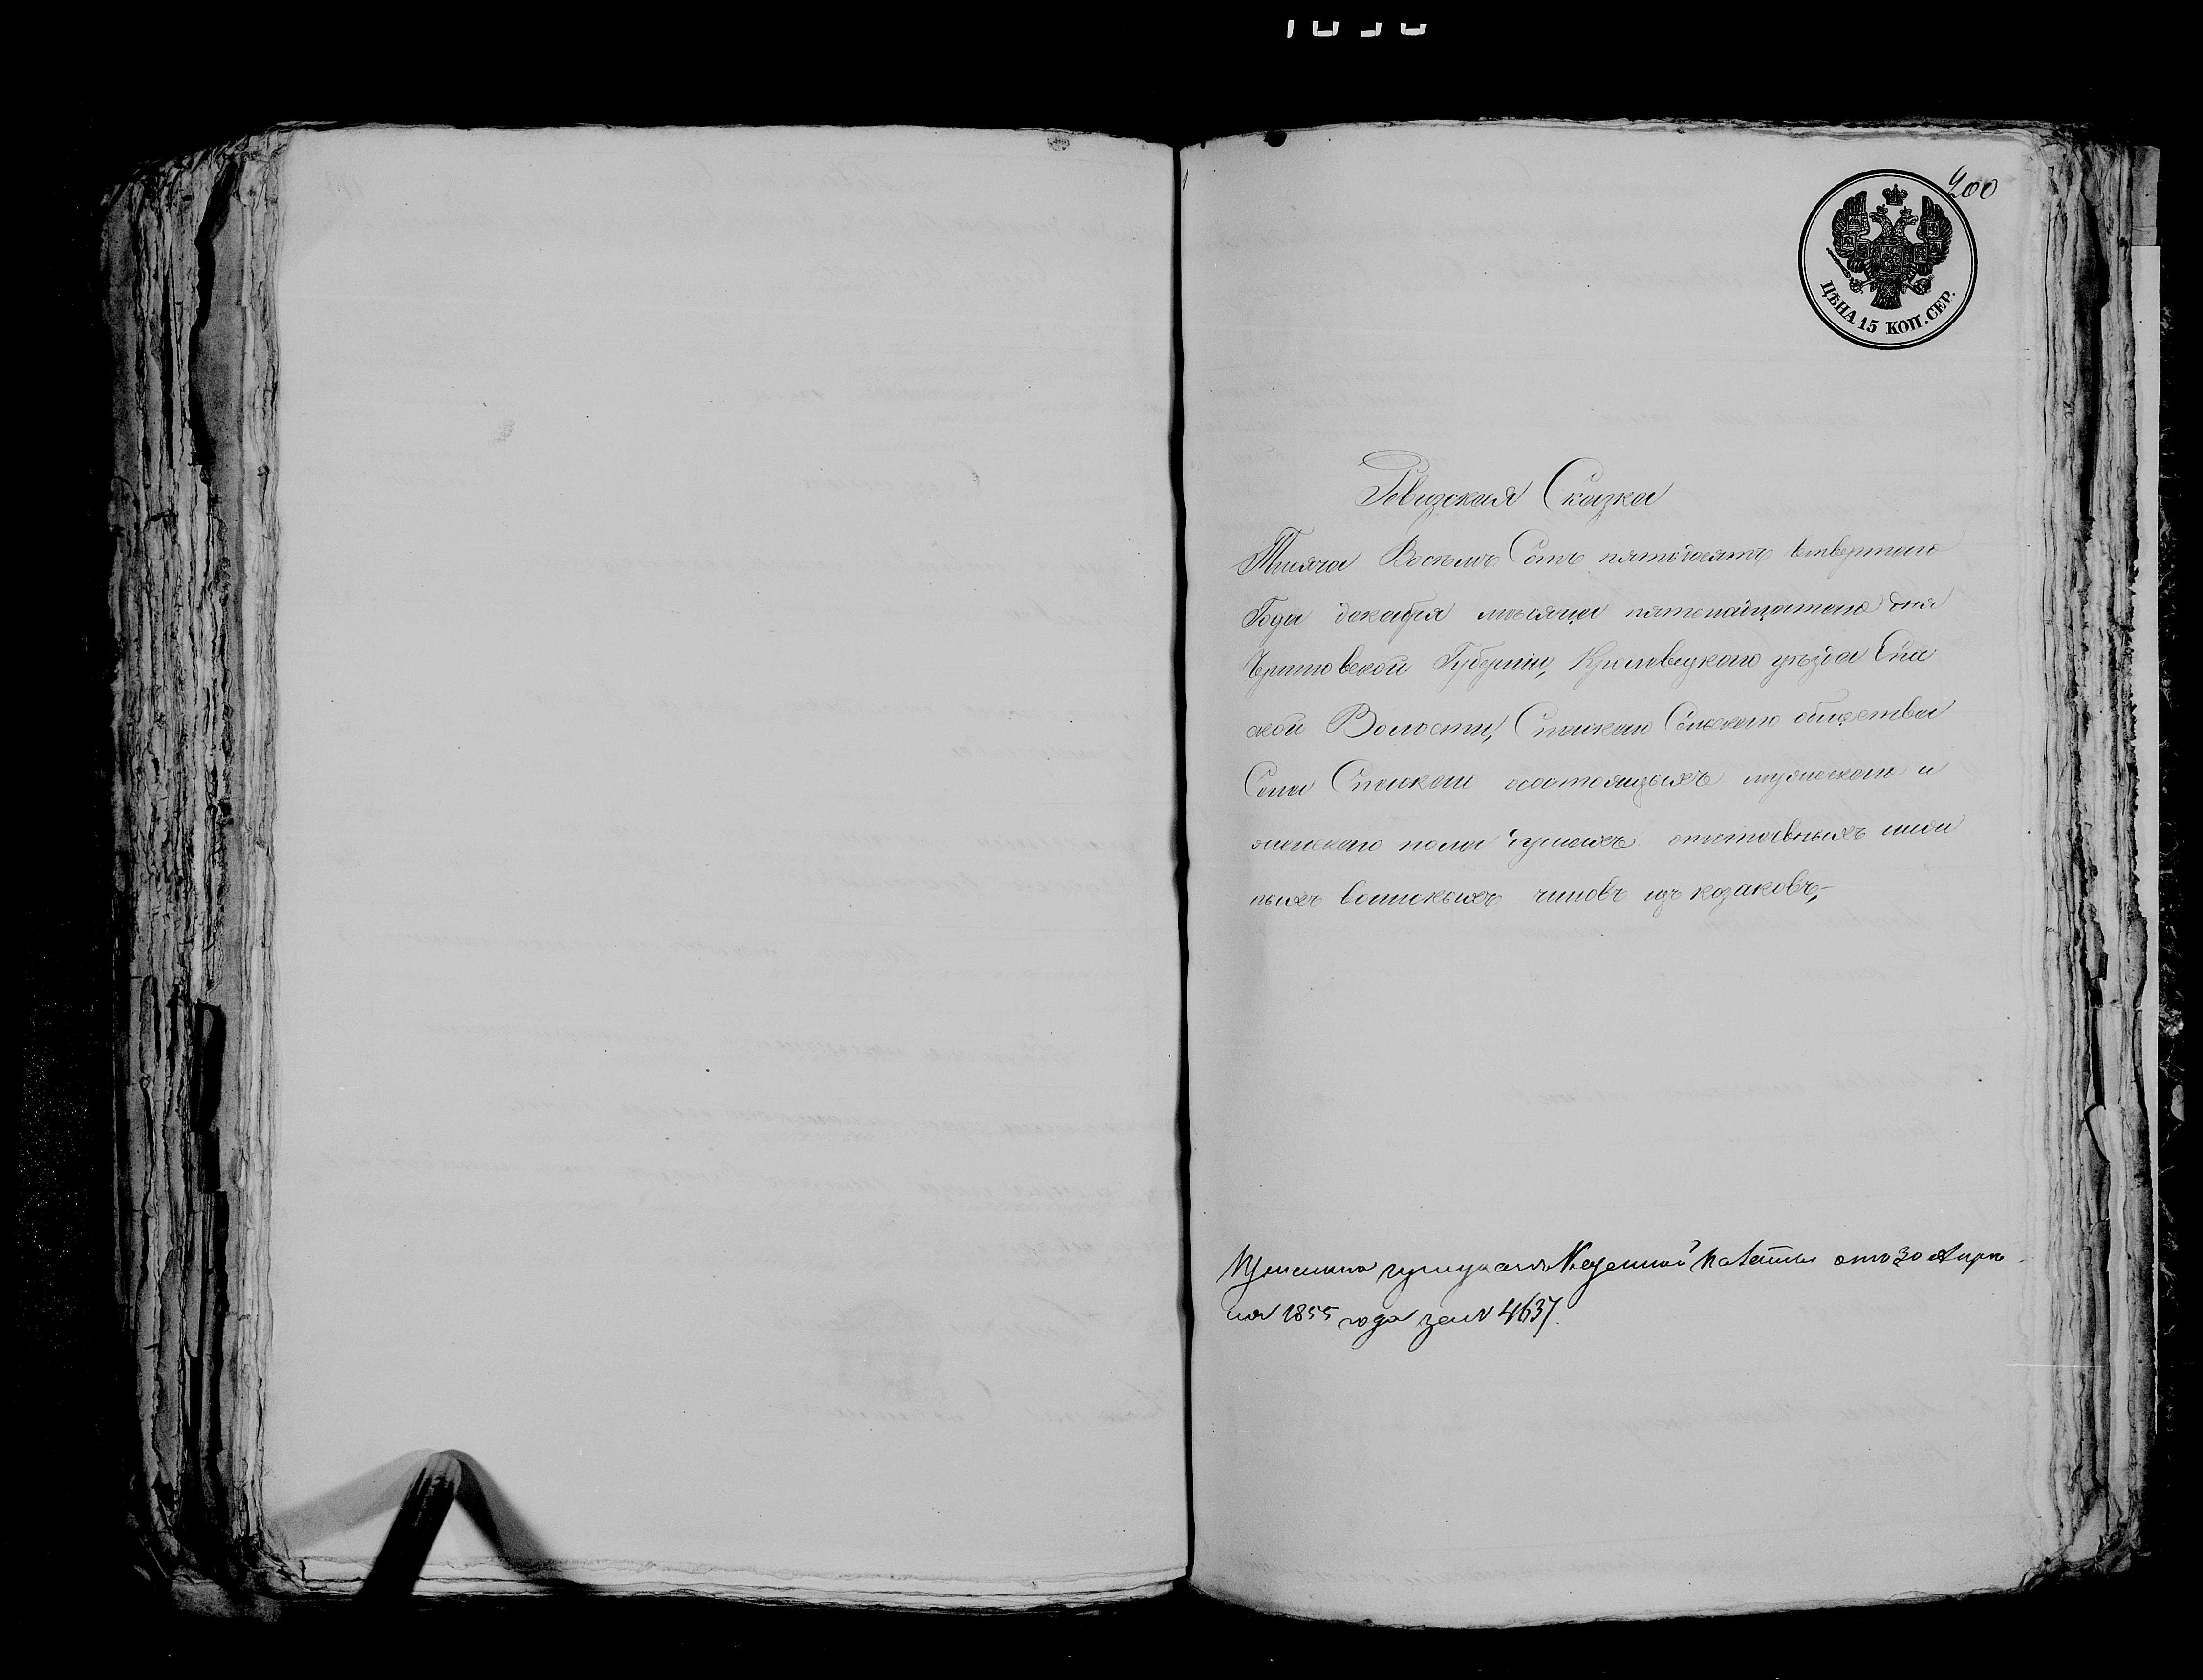 200
ЦѢНА 15 КОП. СЕР.
Ревизская Сказка
Тысяча Восемь Сотъ пятьдесятъ четвертаго
Года декабря мѣсяца пятнадцатаго дня
Черниговской Губерніи, Кролевецкаго уѣзда Спа
ской Волости, Спаскаго Сельскаго общества
Села Спаскаго о состоящихъ мужескаго и
женскаго пола душахъ отставныхъ ниж
нихъ воинскихъ чиновъ изъ козаковъ,-
Казенной Палаты отъ 30 Апрѣ
ля 1855 года за N 4637.